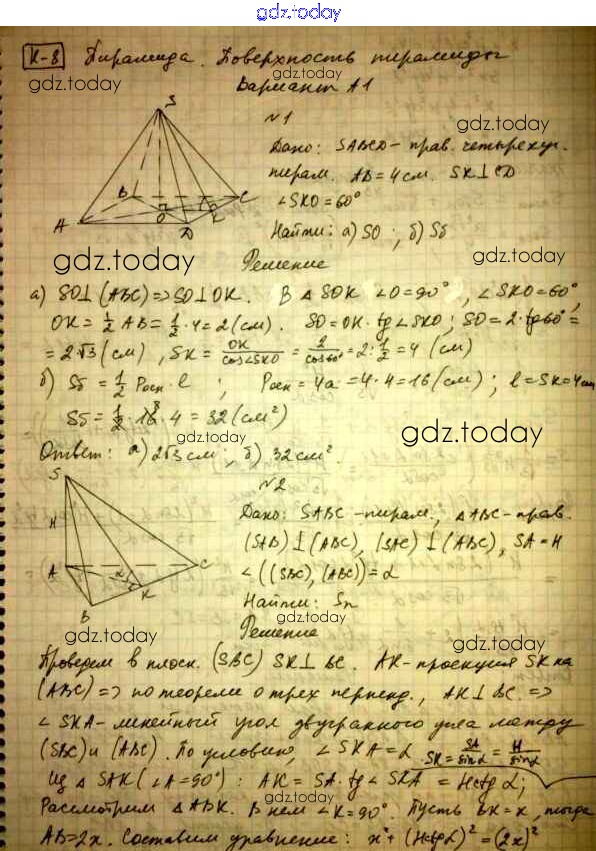 gdz.today
К-8 Пирамида. Поверхность пирамиды
gdz.today
gdz.today
Вариант А1
S
№1
gdz.today
Дано: SABCD – прав. четырехуг.
пирам. AB = 4 см. SK ⊥ CD
B
C
∠SKO = 60°
A
O
K
D
Найти: а) SO ; б) Sб
gdz.today
gdz.today
Решение
а) SO ⊥ (ABC) => SO ⊥ OK. В △ SOK ∠O = 90°, ∠SKO = 60°,
OK = 1/2 AB = 1/2 · 4 = 2 (см). SO = OK · tg ∠SKO ; SO = 2 · tg 60° =
= 2√3 (см) , SK = OK/cos∠SKO = 2/cos 60° = 2 : 1/2 = 4 (см)
б) Sб = 1/2 Pосн · l ; Pосн = 4a = 4 · 4 = 16 (см) ; l = SK = 4 см
Sб = 1/2 · 16 8 · 4 = 32 (см²)
gdz.today
Ответ: а) 2√3 см ; б) 32 см².
gdz.today
S
№2
H
Дано: SABC – пирам., △ABC – прав.
(SAB) ⊥ (ABC), (SAC) ⊥ (ABC), SA = H
A
α
C
K
B
∠((SBC), (ABC)) = α
Найти: Sп
gdz.today
gdz.today
Решение
Проведем в плоск. (SBC) SK ⊥ BC. AK – проекция SK на
(ABC) => по теореме о трех перпенд., AK ⊥ BC =>
∠SKA – линейный угол двугранного угла между
gdz.today
(SBC) и (ABC). По условию, ∠SKA = α
SK = SA/sinα = H/sinα
Из △ SAK (∠A = 90°) : AK = SA · tg ∠SKA = Hctg α;
gdz.today
Рассмотрим △ ABK. В нем ∠K = 90°. Пусть BK = x, тогда
AB = 2x. Составим уравнение: x² + (Hctgα)² = (2x)²